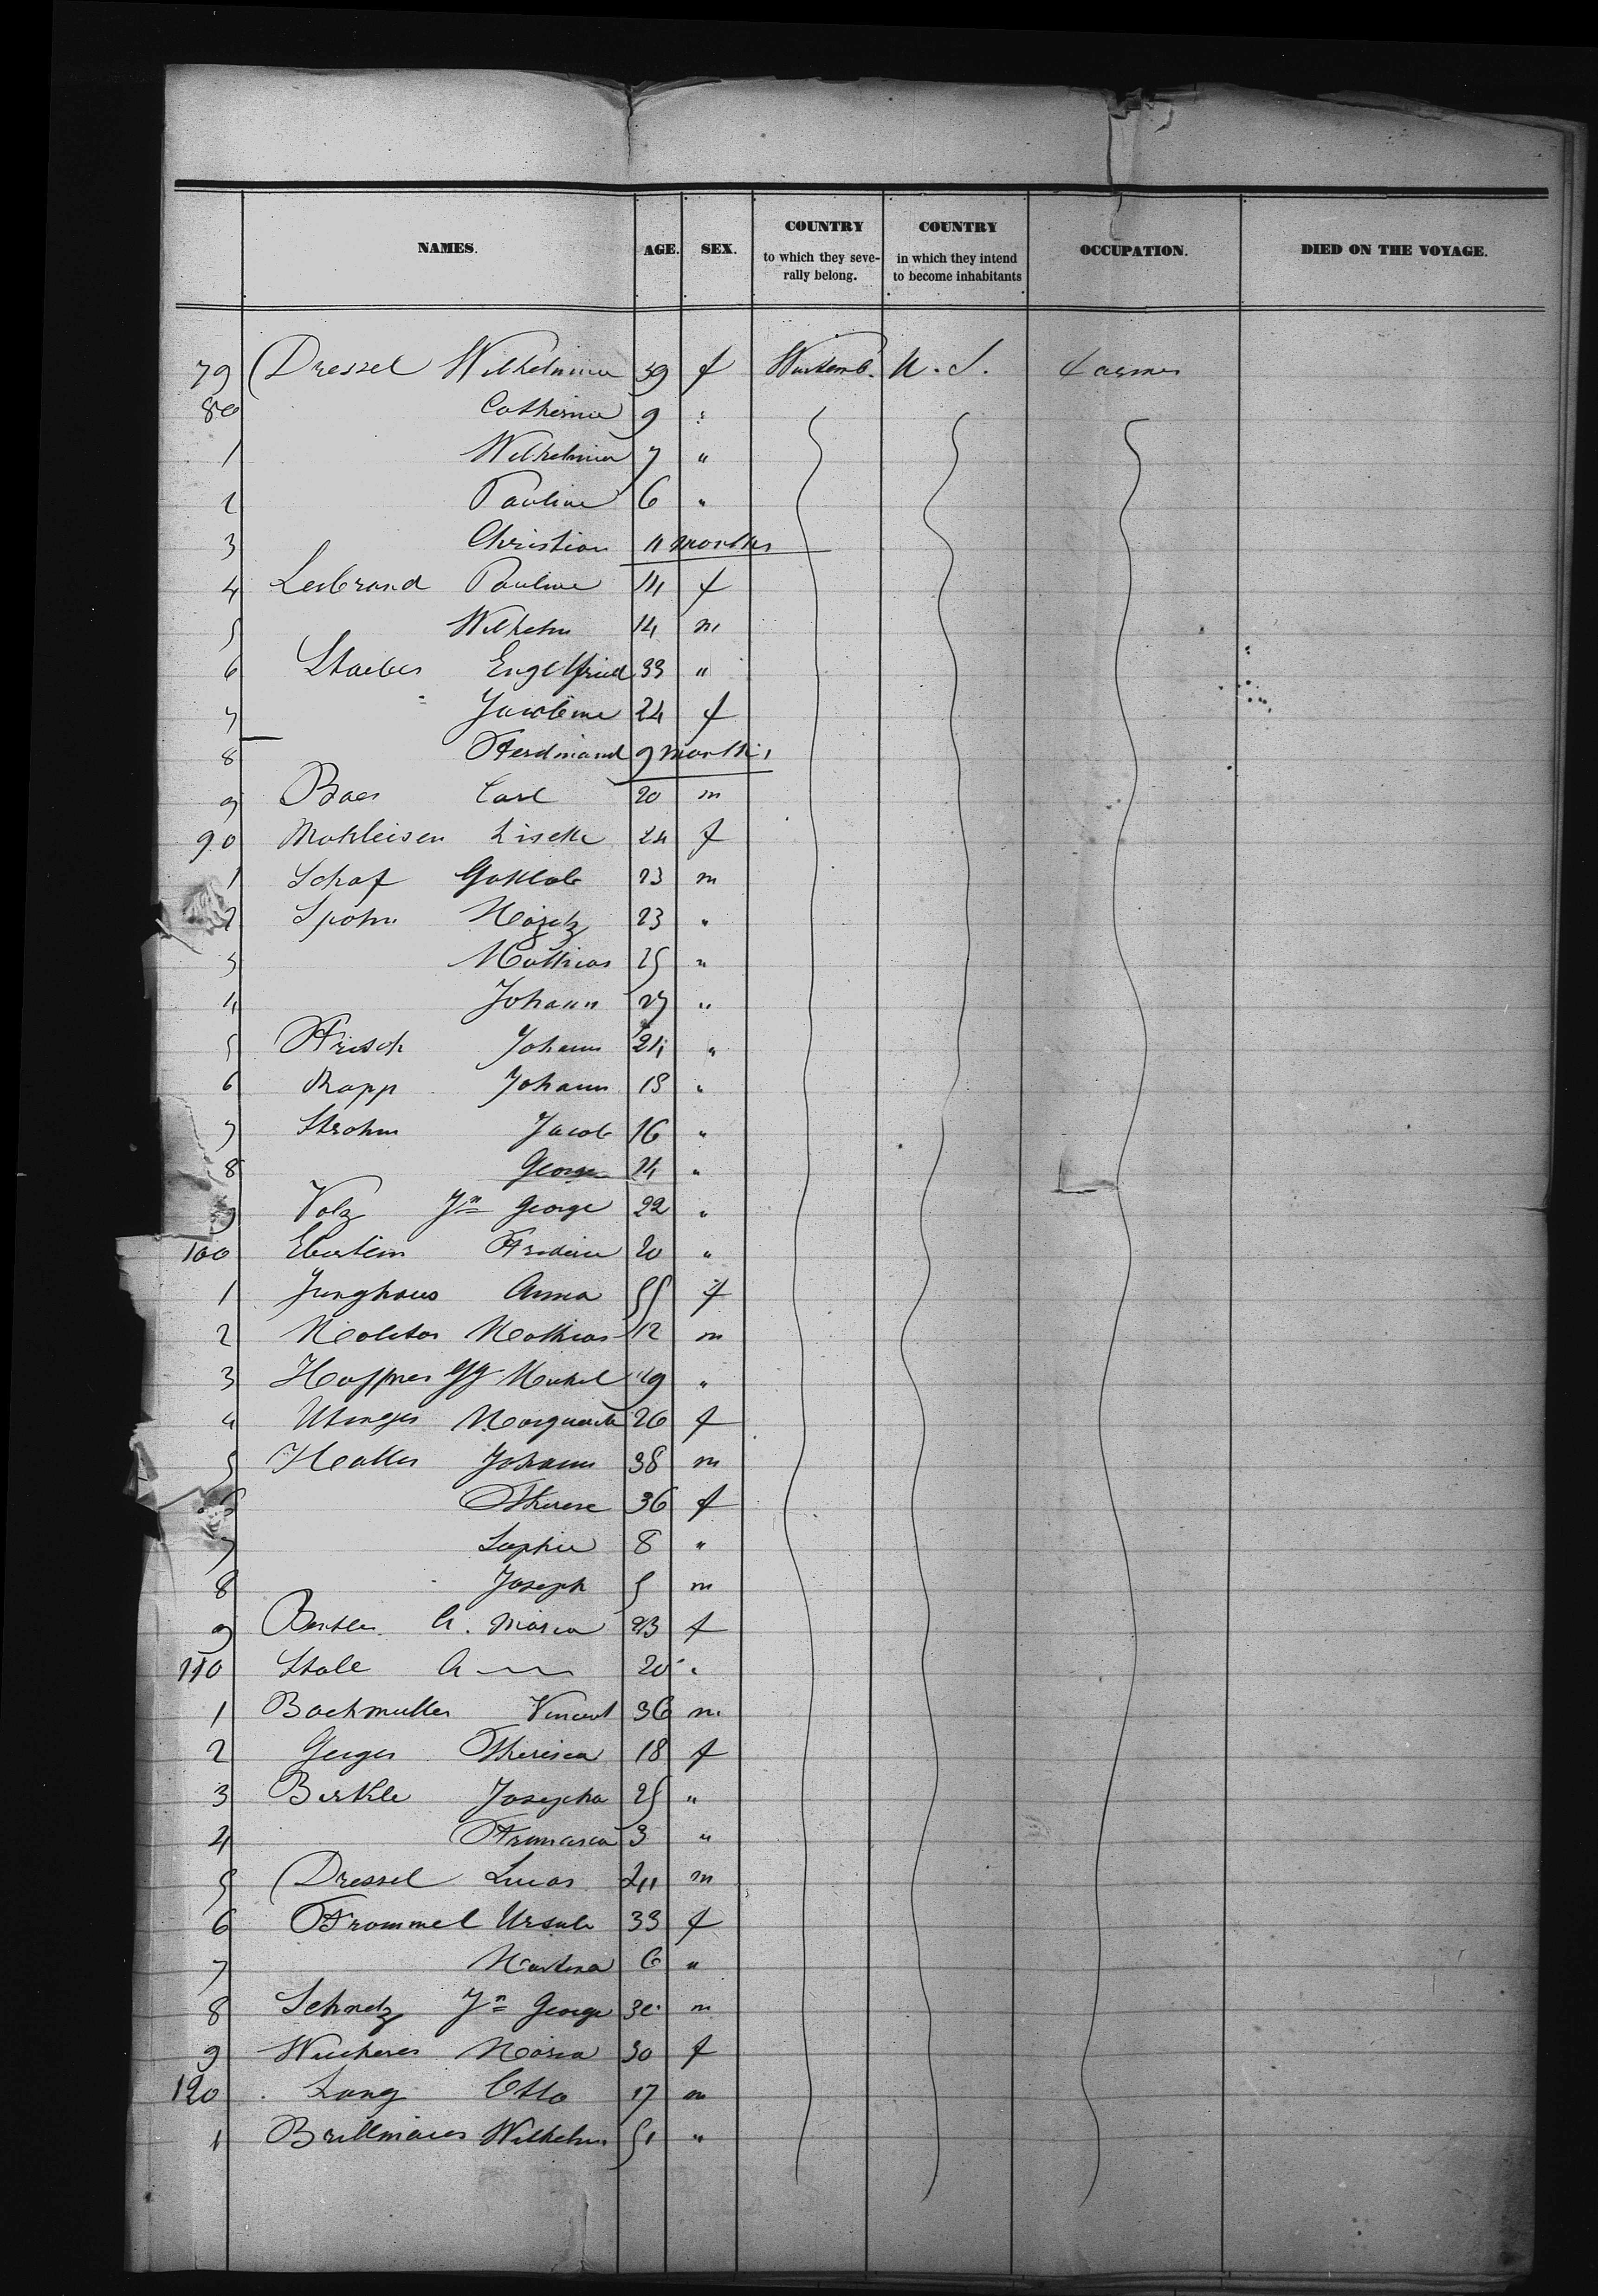 NAMES. AGE. SEX. COUNTRY to which they severally belong. COUNTRY in which they intend to become inhabitants OCCUPATION. DIED ON THE VOYAGE.
79 Dressel Wilhelmine 39 f Wurtemb. U. S. Farmer
80 Catherine 9 "
1 Wilhelmine 7 "
2 Pauline 6 "
3 Christian 11 months
4 Leibrand Pauline 14 f
5 Wilhelm 14 m
6 Staeber Engelfried 33 "
7 " Jacobine 24 f
8 Ferdinand 9 months
9 Baer Carl 20 m
90 Mahleisen Lisette 24 f
1 Schaf Gottlob 23 m
2 Spohn Moritz 23 "
3 Mathias 25 "
4 Johann 27 "
5 Frisch Johann 24 "
6 Rapp Johann 18 "
7 Strohm Jacob 16 "
8 George 24 "
9 Volz Jn George 22 "
100 Eberlein 20 "
1 Junghaus Anna 55 f
2 Molitor Mathias 12 m
3 Haffner Gg Michel 29 "
4 26 f
5 Haller Johann 38 m
6 Therese 36 f
7 Sophie 8 "
8 Joseph 5 m
9 A. Maria 23 f
110 A 20 "
1 Bachmuller Vincent 36 m
2 Geiger Theresia 18 f
3 Birkle Josepha 25 "
4 Francisca 3 "
5 Dressel Lucas 24 m
6 Frommel Ursula 33 f
7 Martina 6 "
8 Schmelz Jn George 30 m
9 Wucherer Maria 30 f
120 Lang Otto 17 m
1 Wilhelm 51 "